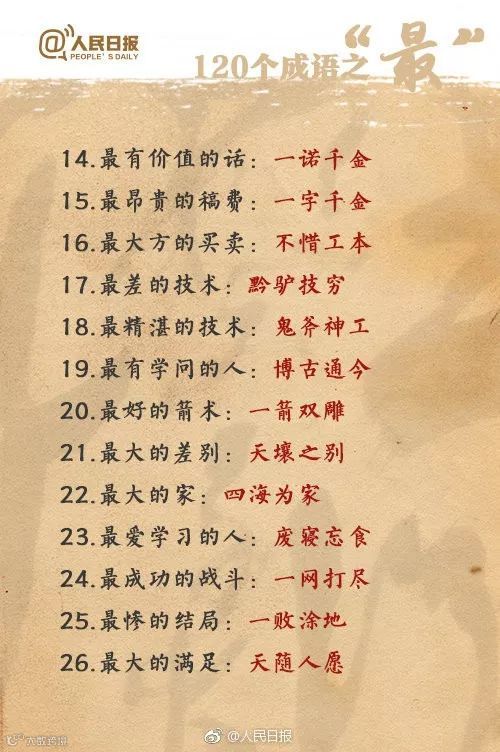 @人民日报
PEOPLE'S DAILY
120个成语之“最”
14.最有价值的话：一诺千金
15.最昂贵的稿费：一字千金
16.最大方的买卖：不惜工本
17.最差的技术：黔驴技穷
18.最精湛的技术：鬼斧神工
19.最有学问的人：博古通今
20.最好的箭术：一箭双雕
21.最大的差别：天壤之别
22.最大的家：四海为家
23.最爱学习的人：废寝忘食
24.最成功的战斗：一网打尽
25.最惨的结局：一败涂地
26.最大的满足：天随人愿
大数跨境
@人民日报